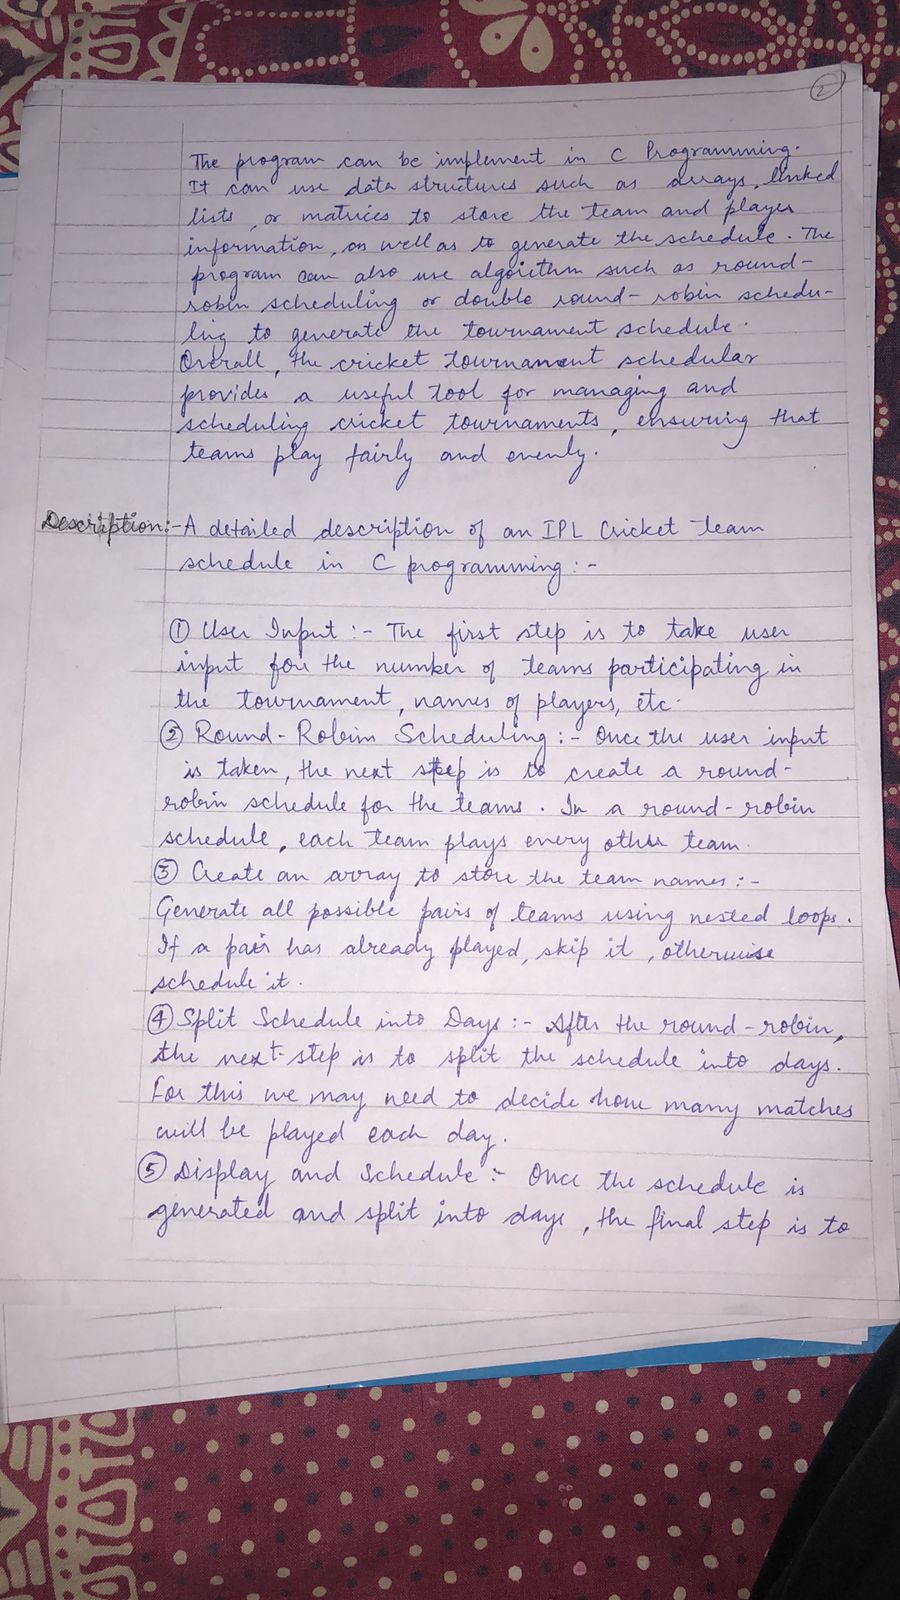 2
The program can be implement in C Programming.
It can use data structures such as arrays, linked
lists, or matrices to store the team and player
information, as well as to generate the schedule. The
program can also use algorithm such as round-
robin scheduling or double round-robin schedu-
ling to generate the tournament schedule.
Overall, the cricket tournament schedular
provides a useful tool for managing and
scheduling cricket tournaments, ensuring that
teams play fairly and evenly.
Description:- A detailed description of an IPL Cricket Team
schedule in C programming:-
① User Input:- The first step is to take user
input for the number of teams participating in
the tournament, names of players, etc.
② Round-Robin Scheduling:- Once the user input
is taken, the next step is to create a round-
robin schedule for the teams. In a round-robin
schedule, each team plays every other team.
③ Create an array to store the team names:-
Generate all possible pairs of teams using nested loops.
If a pair has already played, skip it, otherwise
schedule it.
④ Split Schedule into Days:- After the round-robin,
the next step is to split the schedule into days.
For this we may need to decide how many matches
will be played each day.
⑤ Display and Schedule:- Once the schedule is
generated and split into days, the final step is to